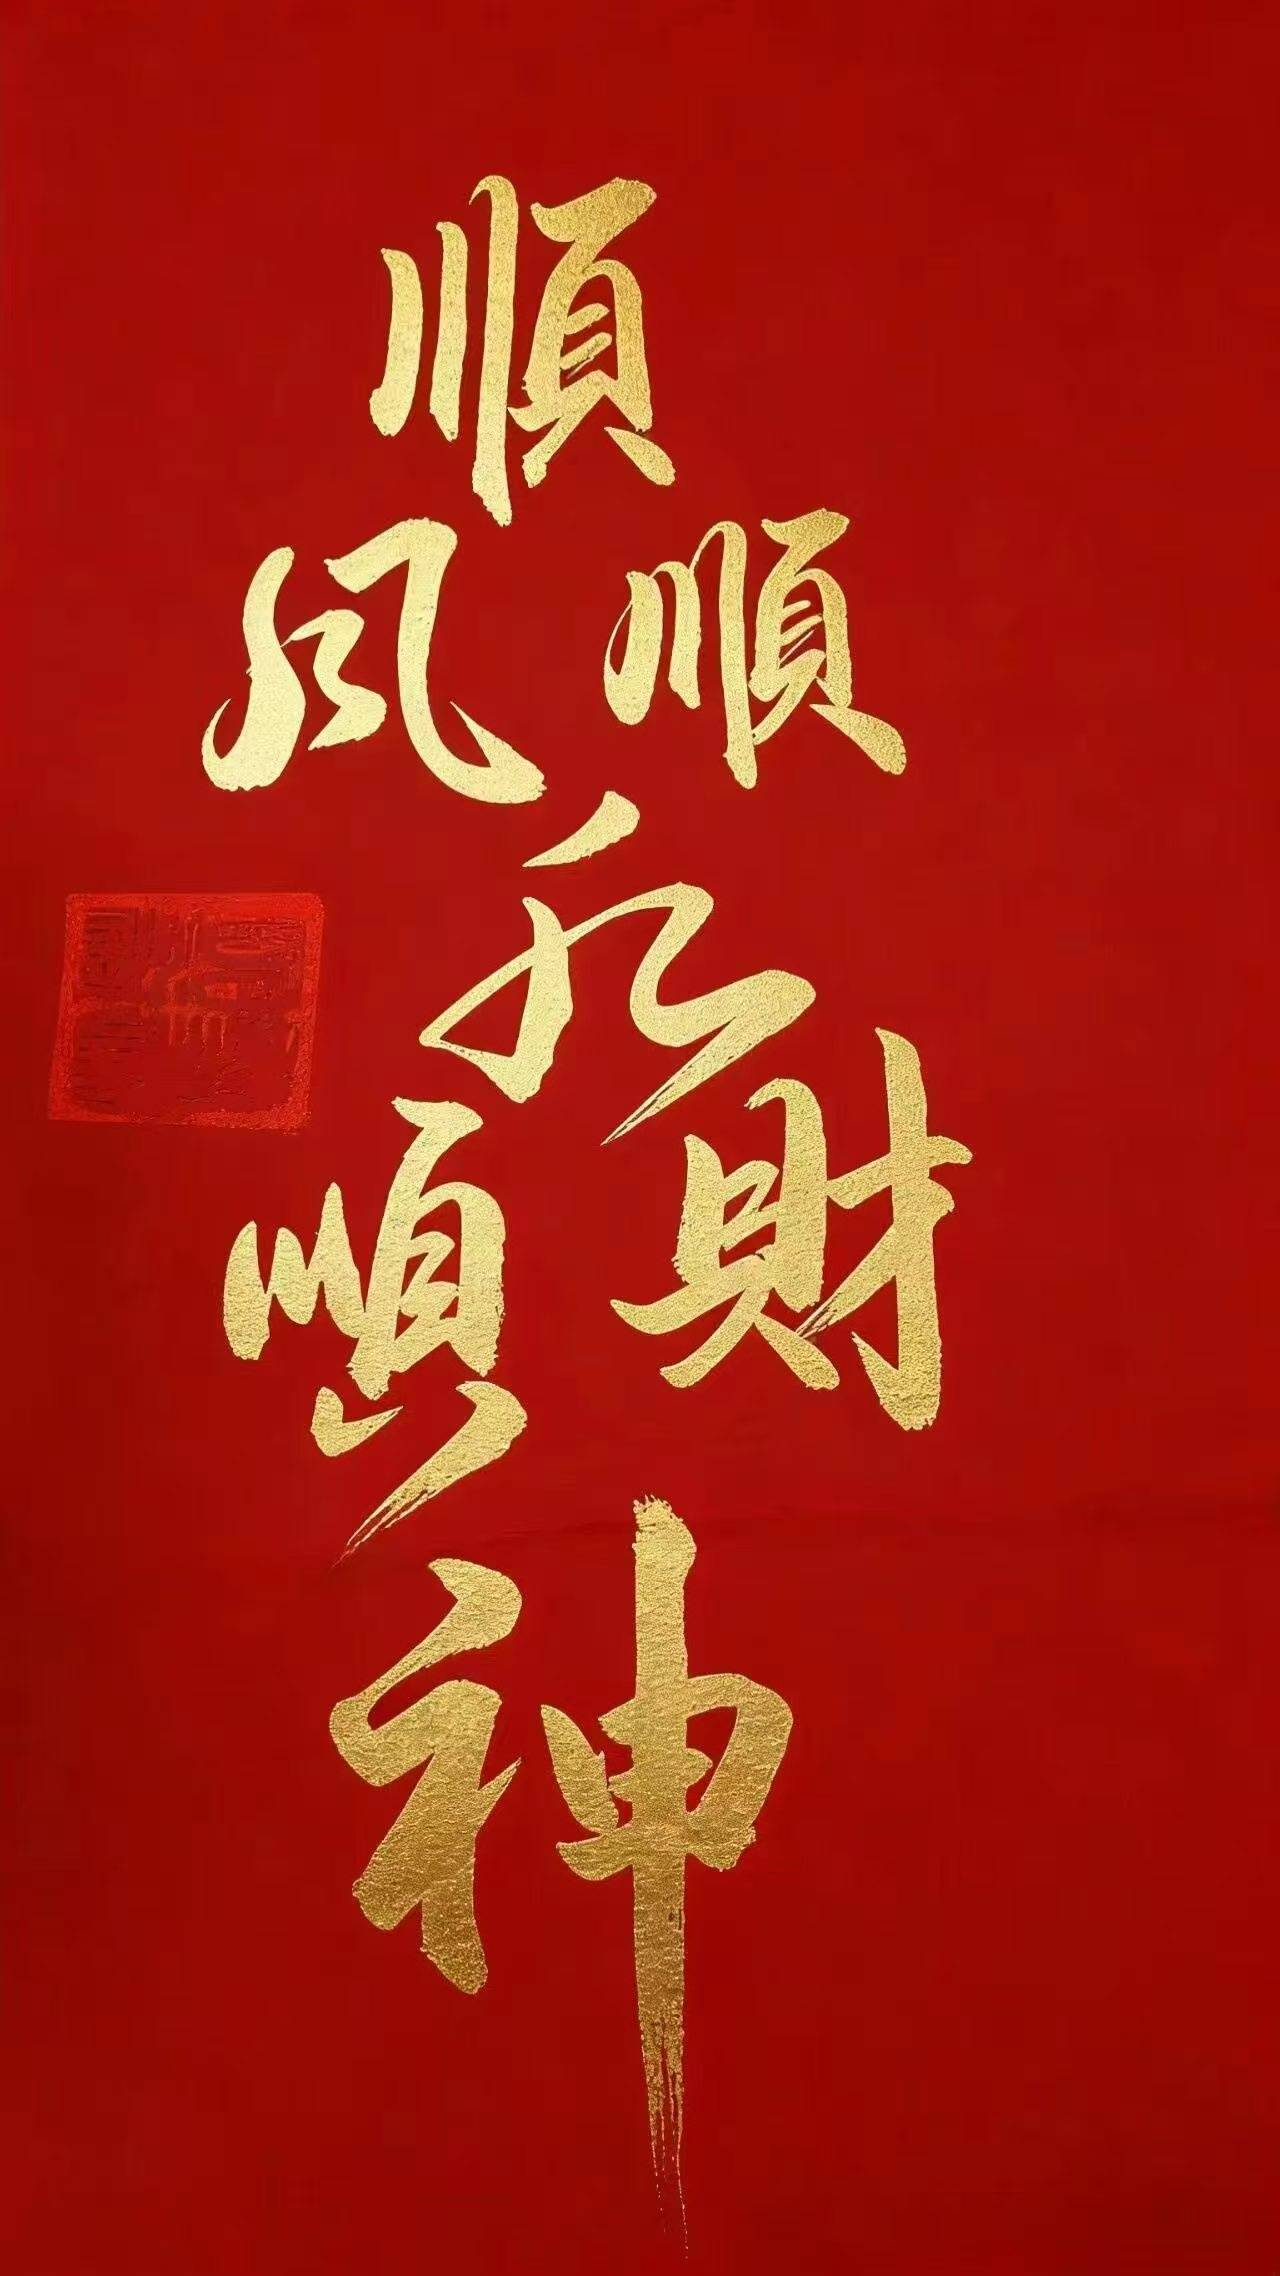 順
風順
水
順財
神